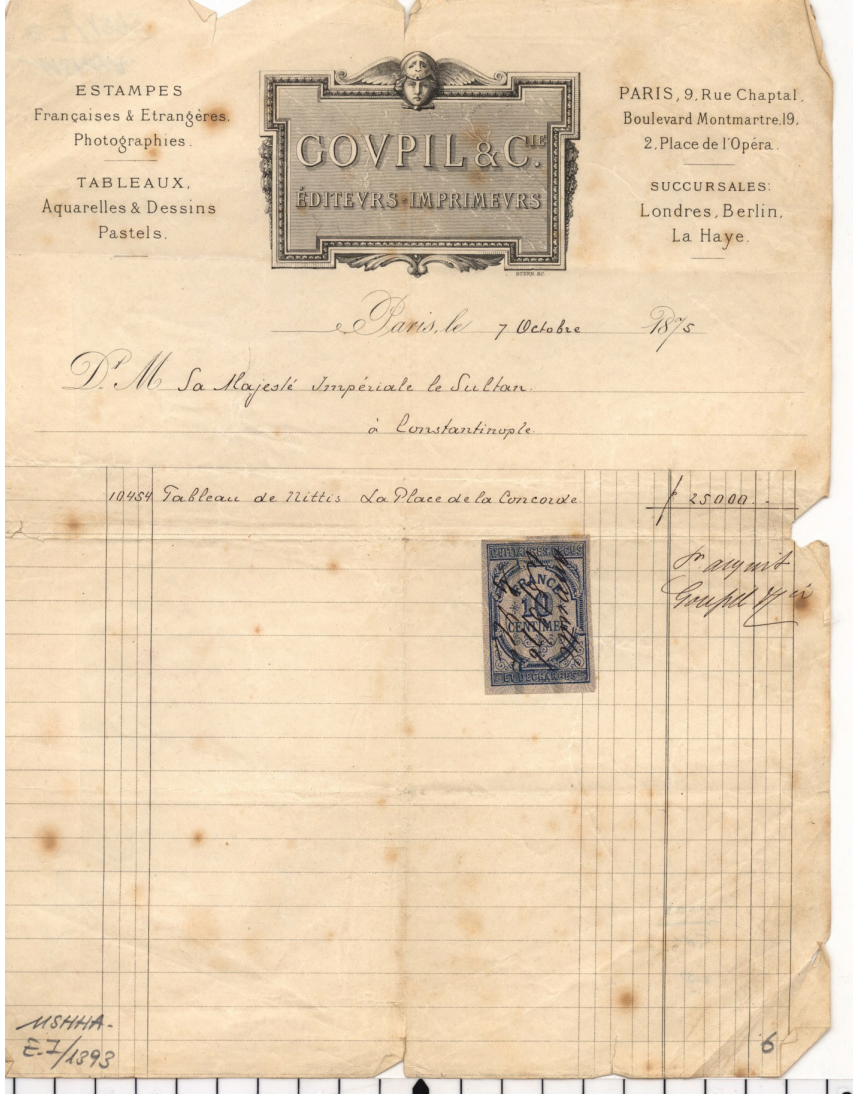 ESTAMPES
Françaises & Etrangères.
Photographies.
TABLEAUX,
Aquarelles & Dessins
Pastels.
GOVPIL & C.IE
ÉDITEVRS-IMPRIMEVRS
STERN. SC.
PARIS, 9, Rue Chaptal,
Boulevard Montmartre, 19,
2, Place de l'Opéra.
SUCCURSALES:
Londres, Berlin,
La Haye.
Paris, le 7 Octobre 1875
Dt M Sa Majesté Impériale le Sultan.
à Constantinople.
10454 Tableau de Nittis La Place de la Concorde f 25000 . -
Pr acquit
Goupil & Cie
QUITTANCES REÇUS
FRANCE
10
CENTIMES
ET DÉCHARGES
MSHHA-
E.I/1393
6